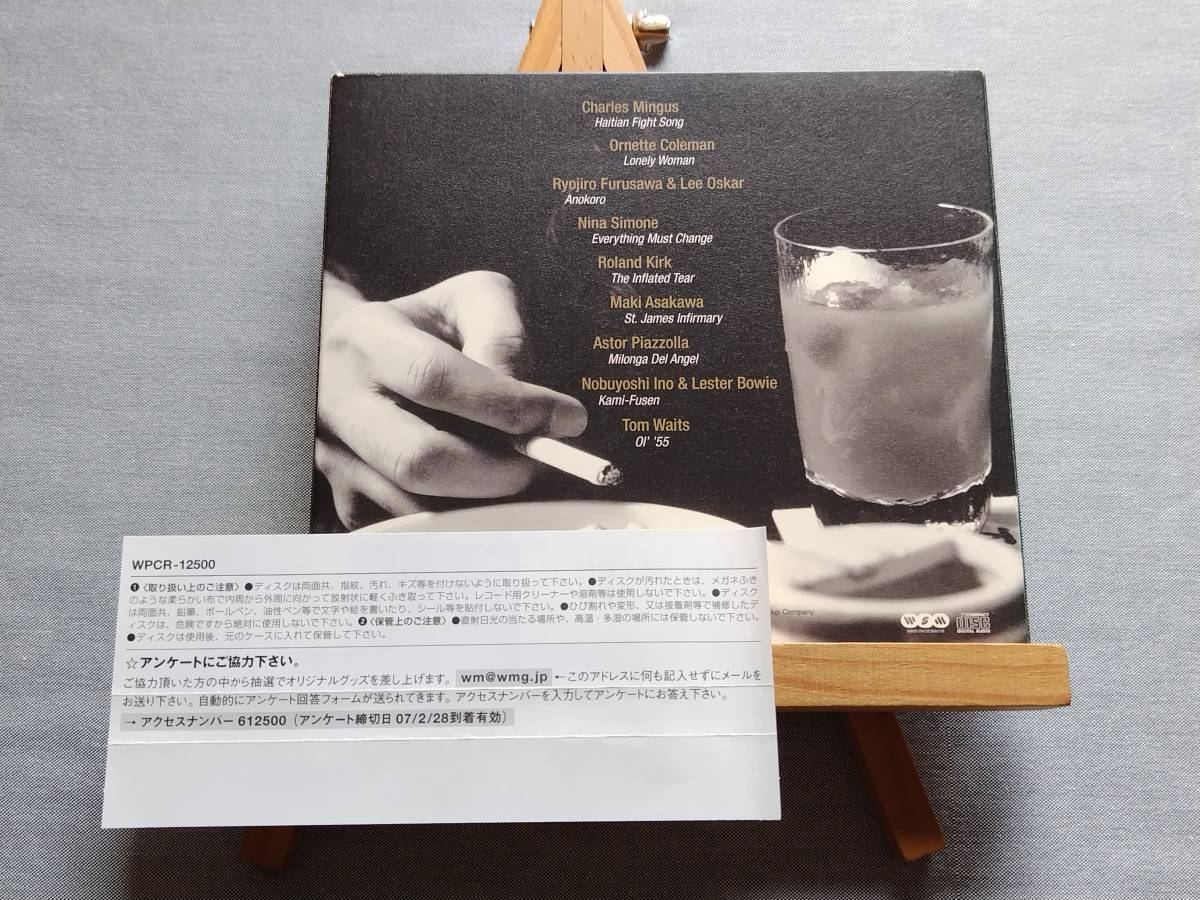 Charles Mingus
Haitian Fight Song
Ornette Coleman
Lonely Woman
Ryojiro Furusawa & Lee Oskar
Anokoro
Nina Simone
Everything Must Change
Roland Kirk
The Inflated Tear
Maki Asakawa
St. James Infirmary
Astor Piazzolla
Milonga Del Angel
Nobuyoshi Ino & Lester Bowie
Kami-Fusen
Tom Waits
Ol' '55
Company
WSM
COMPACT
disc
DIGITAL AUDIO
WPCR-12500
❶〈取り扱い上のご注意〉●ディスクは両面共、指紋、汚れ、キズ等を付けないように取り扱って下さい。●ディスクが汚れたときは、メガネふき
のような柔らかい布で内周から外周に向かって放射状に軽くふき取って下さい。レコード用クリーナーや溶剤等は使用しないで下さい。●ディスク
は両面共、鉛筆、ボールペン、油性ペン等で文字や絵を書いたり、シール等を貼付しないで下さい。●ひび割れや変形、又は接着剤等で補修したデ
ィスクは、危険ですから絶対に使用しないで下さい。❷〈保管上のご注意〉●直射日光の当たる場所や、高温・多湿の場所には保管しないで下さい。
●ディスクは使用後、元のケースに入れて保管して下さい。
☆アンケートにご協力下さい。
ご協力頂いた方の中から抽選でオリジナルグッズを差し上げます。 wm@wmg.jp ←このアドレスに何も記入せずにメールを
お送り下さい。自動的にアンケート回答フォームが送られてきます。アクセスナンバーを入力してアンケートにお答え下さい。
→ アクセスナンバー 612500（アンケート締切日 07/2/28到着有効）